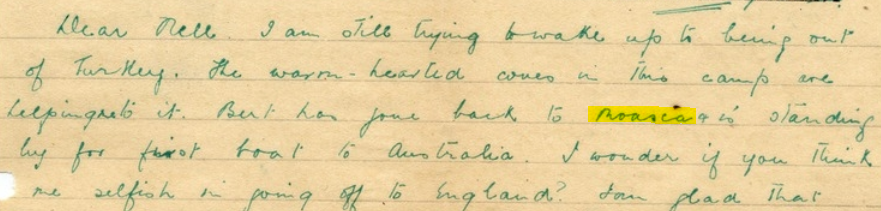 Dear Nell. I am still trying to wake up to being out
of Turkey. The warm-hearted coves in this camp are
helping to it. Bert has gone back to Moascar & is standing
by for first boat to Australia. I wonder if you think
me selfish in going off to England? I am glad that